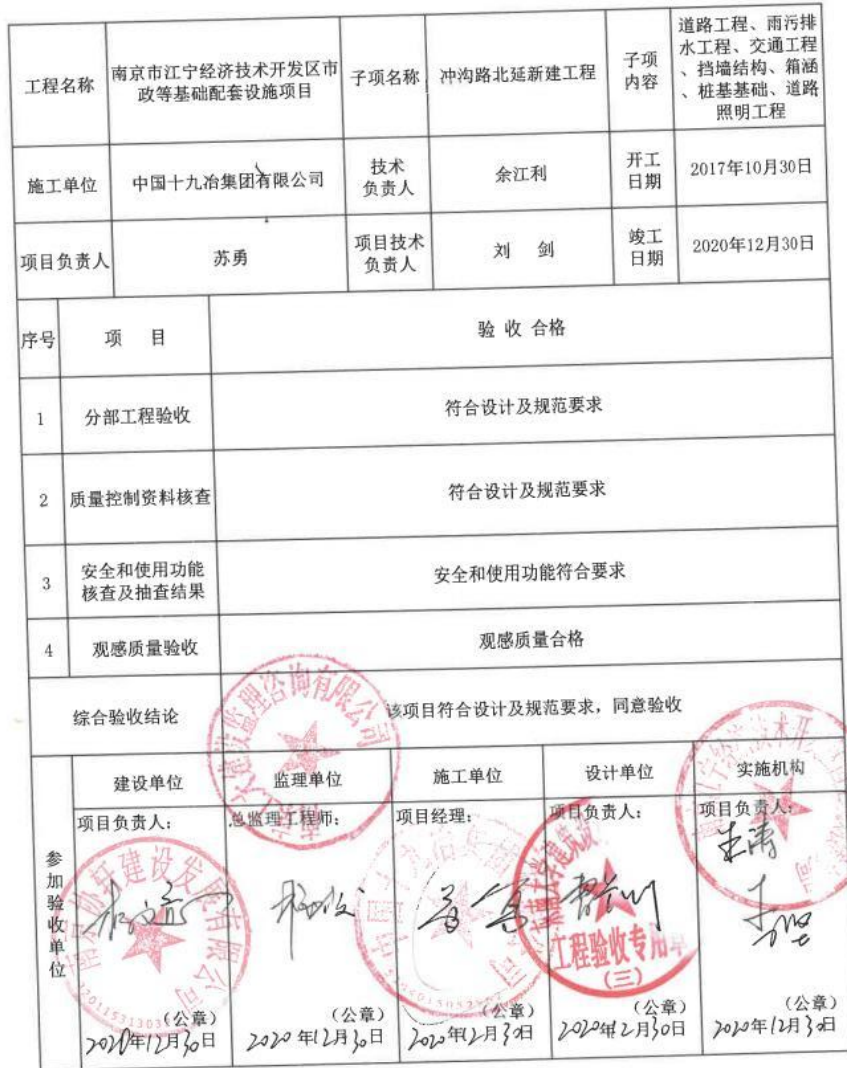 工程名称
南京市江宁经济技术开发区市
政等基础配套设施项目
子项名称
冲沟路北延新建工程
子项
内容
道路工程、雨污排
水工程、交通工程
、挡墙结构、箱涵
、桩基基础、道路
照明工程
施工单位
中国十九冶集团有限公司
技术
负责人
余江利
开工
日期
2017年10月30日
项目负责人
苏勇
项目技术
负责人
刘 剑
竣工
日期
2020年12月30日
序号
项 目
验 收 合格
1
分部工程验收
符合设计及规范要求
2
质量控制资料核查
符合设计及规范要求
3
安全和使用功能
核查及抽查结果
安全和使用功能符合要求
4
观感质量验收
观感质量合格
综合验收结论
该项目符合设计及规范要求，同意验收
参加验收单位
建设单位
监理单位
施工单位
设计单位
实施机构
项目负责人：
总监理工程师：
项目经理：
项目负责人：
项目负责人：
工程验收专用章
(三)
(公章)
(公章)
(公章)
(公章)
(公章)
2020年12月30日
2020年12月30日
2020年12月30日
2020年12月30日
2020年12月30日